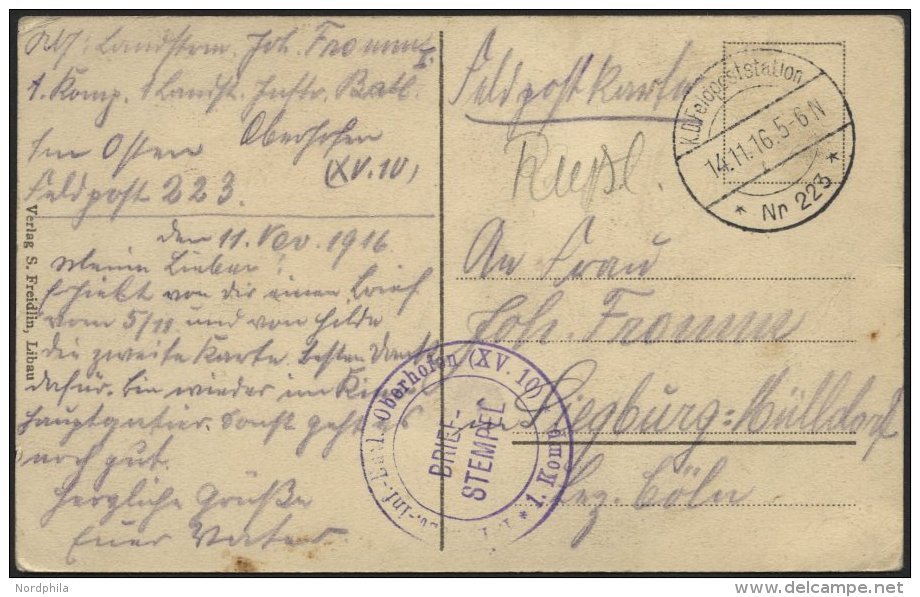 Abs: Landstrm. Joh. Fromm I.
1. Komp. 1 Landst. Inftr. Batl.
Oberhofen
Im Osten (XV.10)
Feldpost 223.
den 11. Nov. 1916
Meine Lieben!
Erhielt von dir einen Brief
vom 5/11 und von Hilde
die zweite Karte besten Dank
dafür. Bin wieder im
hauptquatier. Sonst geht es
noch gut.
Herzliche Grüße
Euer Vater.
Verlag S. Freidlin, Libau
Feldpostkarte
K.D. Feldpoststation
14.11.16.5-6N
* Nr 223 *
An Frau
Joh. Fromm
Siegburg=Mülldorf
Bez. Cöln
Oberhofen (XV. 10)
* 1. Komp.
BRIEF-
STEMPEL
Nordphila
www.delcampe.net